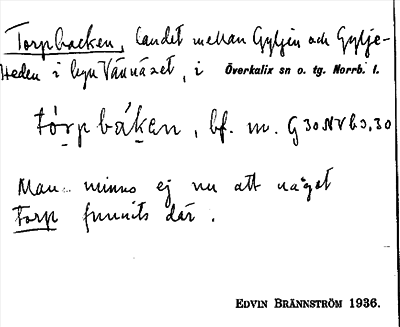 Torpbacken, landet mellan Gyljen och Gylje-
heden i byn Vännäset, i Överkalix sn o. tg. Norrb. l.
tǫ́rpbák̠en, bf. m. G30NVb3,30
Man minns ej nu att något
Torp funnits där.
EDVIN BRÄNNSTRÖM 1936.